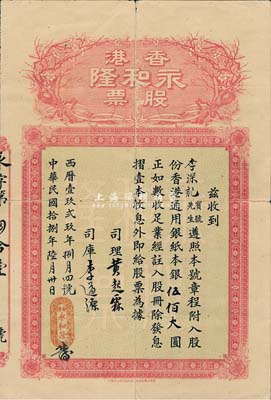 香港
永和隆
股票
茲收到
李深記寶號先生遵照本號章程附入股
份香港通用銀紙本銀伍佰大圓
正如數收足業經註入股冊除發息
摺壹本收息外即給股票為據
司理黃
司庫李
西曆壹玖弍玖年捌月四號
中華民國拾捌年陸月卅日